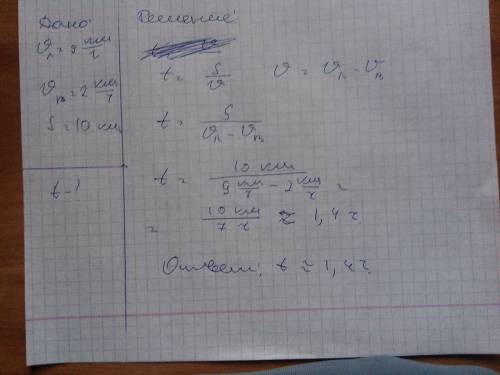 Дано:
υл = 9 км/ч
υв = 2 км/ч
S = 10 км
t - ?
Решение:
t = S/υ υ = υл - υв
t = S/(υл - υв)
t = 10 км/(9 км/ч - 2 км/ч) =
= 10 км/7 ч ≈ 1,4 ч
Ответ: t ≈ 1,4 ч